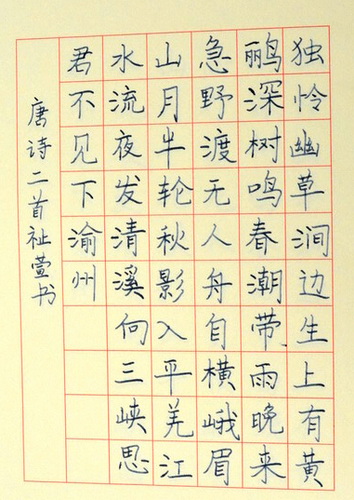 独怜幽草涧边生上有黄
鹂深树鸣春潮带雨晚来
急野渡无人舟自横峨眉
山月半轮秋影入平羌江
水流夜发清溪向三峡思
君不见下渝州
唐诗二首祉萱书